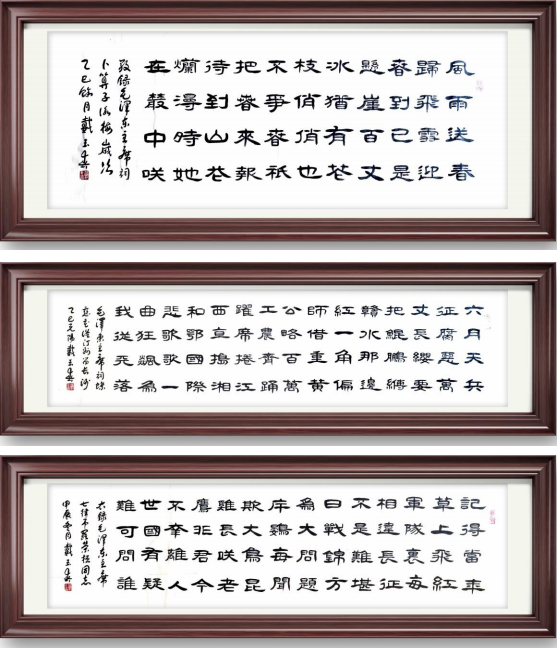 風雨送春
歸飛雪迎
春到已是
懸崖百丈
冰猶有花
枝俏俏也
不爭春祇
把春來報
待到山花
爛漫時她
在叢中咲
敬錄毛澤東主席詞
卜算子詠梅歲次
乙巳餘月戴玉
六月天兵
征腐惡萬
丈長纓要
把鯤鵬縛
贛水那邊
紅一角偏
師借重黃
公略百萬
工農齊踴
躍席捲江
西直搗湘
和鄂國際
悲歌歌一
曲狂飆為
我從天落
毛澤東主席詞蝶
戀花從汀州向長沙
乙巳戴玉
記得當年
草上飛紅
軍隊裏每
相違長征
不是難堪
日戰錦方
為大問題
斥鷃每聞
欺大鳥昆
雞長咲老
鷹非君今
不幸離人
世國有疑
難可問誰
錄毛澤東主席
七律吊羅榮桓同志
甲辰月戴玉